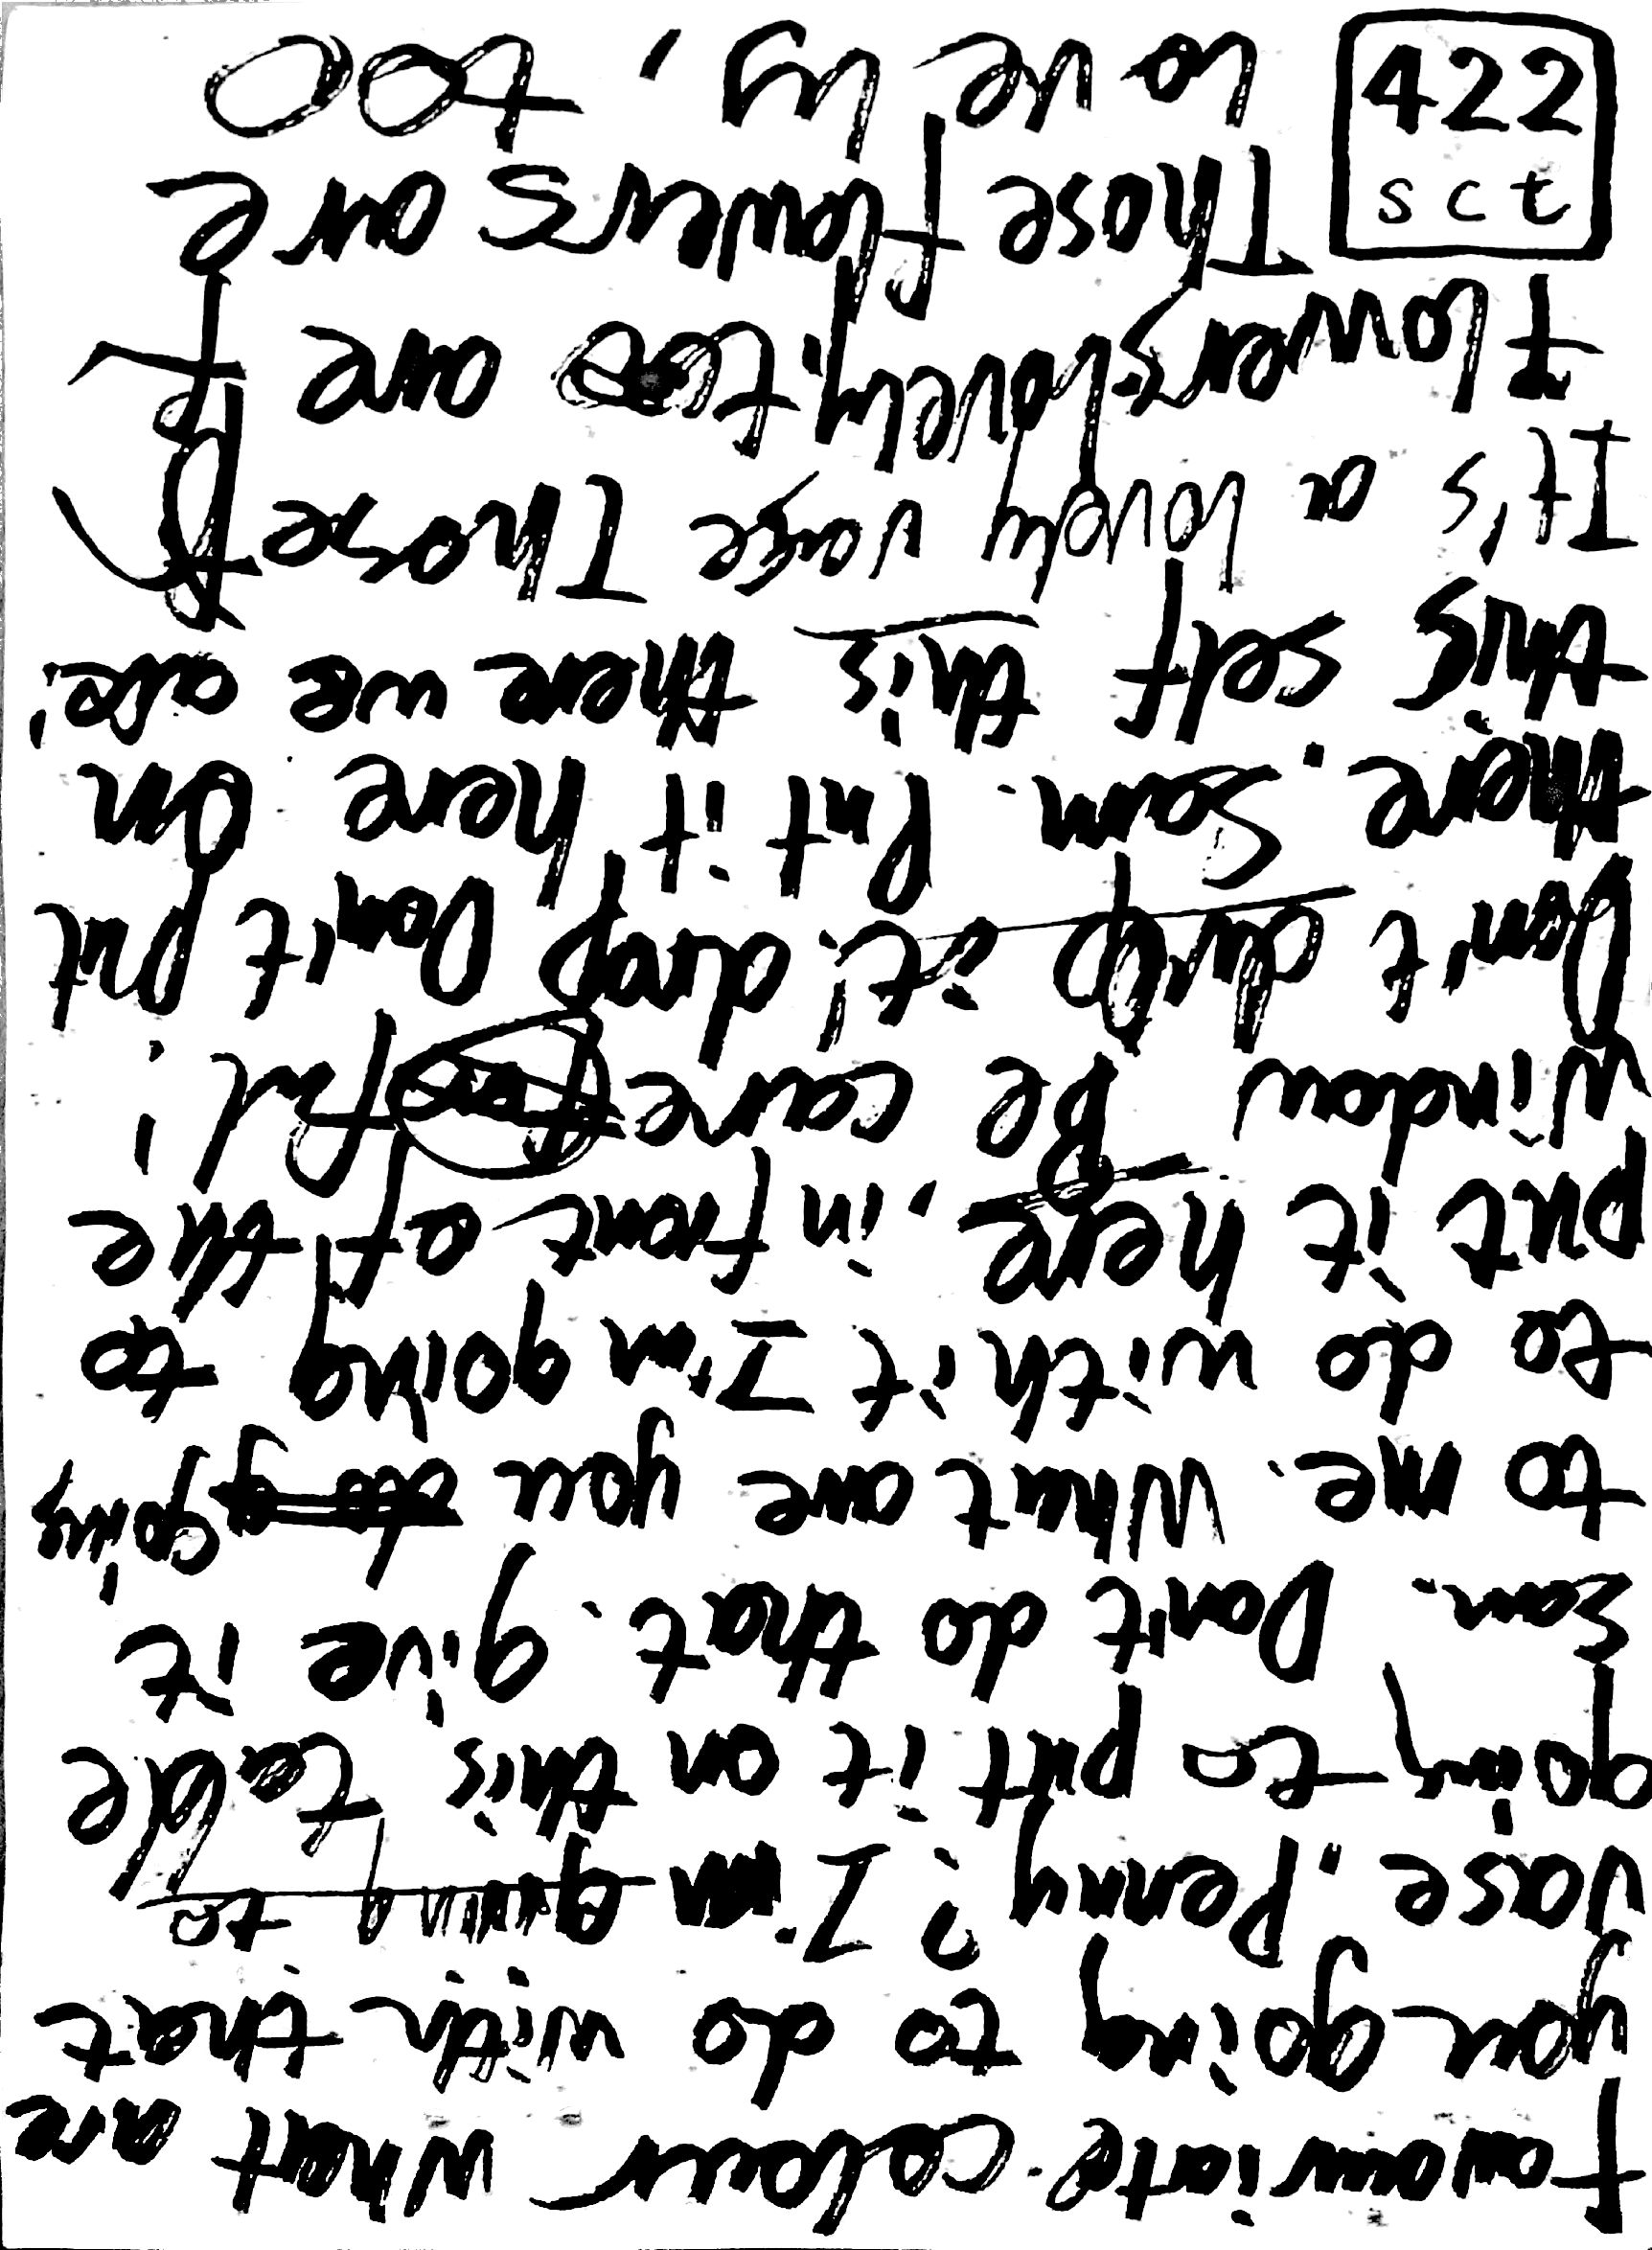 favouriate colour what are
you going to do with that
vase, penny? I'm going to
going to put it on this table
sam. Don't do that. give it
to me. what are you do g going
to do with it I'm going to
put it here, in front of the
window Be care ful;
Don't drop it; drop Don't put
there, Sam. Put it here on
this self this there we are;
It's a lovely rose Those f
flowers lovely, too are f
Those flowers are
lovely, too
422
sct